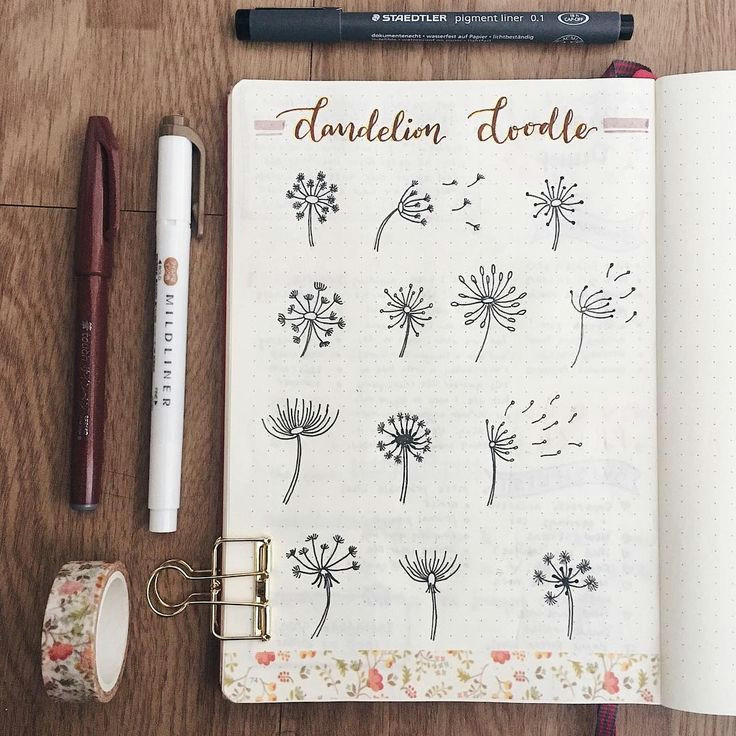 STAEDTLER pigment liner 0.1
dokumentenecht • wasserfest auf Papier • lichtbeständig
dandelion doodle
MILDLINER